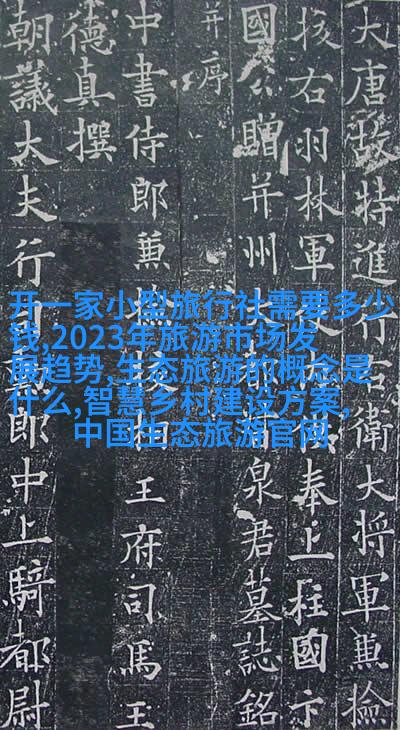 大唐故特進行右衛大將軍兼檢
挍右羽林軍仗內供奉上柱國卞
國公贈并州大都督泉君墓誌銘
并序
中書侍郎兼檢挍相王府司馬王
德真撰
朝議大夫行司勳郎中上騎都尉
开一家小型旅行社需要多少
钱,2023年旅游市场发
展趋势,生态旅游的概念是
什么,智慧乡村建设方案,
中国生态旅游官网